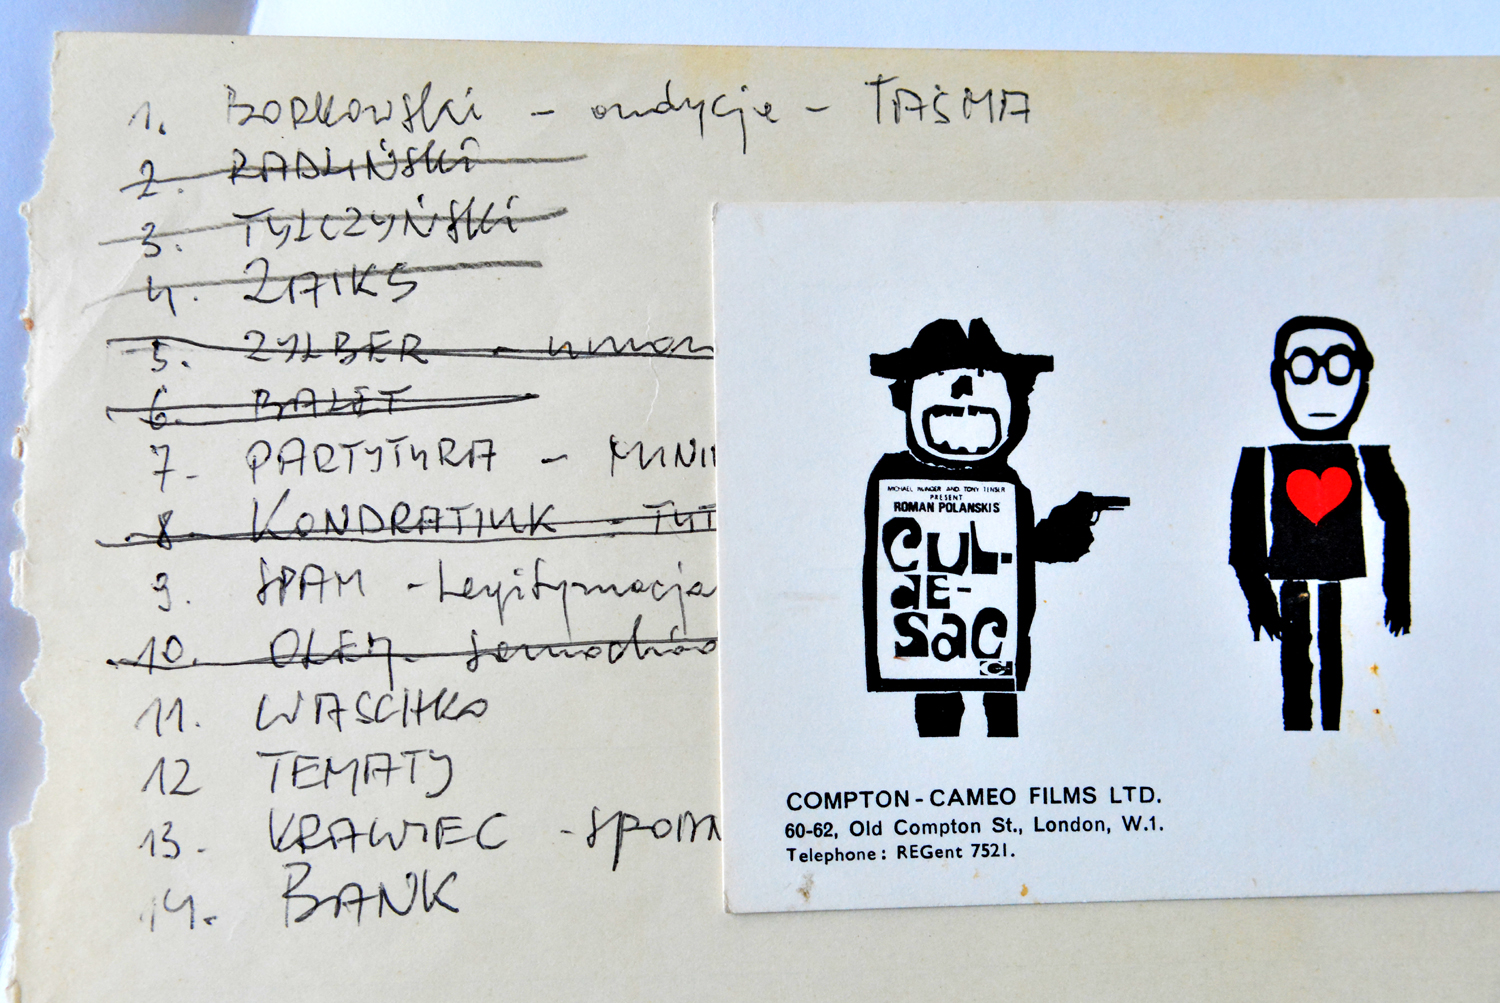 1. BORKOWSKI - audycje - TAŚMA
2. RADLIŃSKI
3. TYLCZYŃSKI
4. ZAIKS
5. ZYLBER - umow
6. BALET
7. PARTYTURA - MINI
8. KONDRATIUK - TYT
9. SPAM - Legitymacja
10. OLEJ - samochód
11. WASCHKO
12 TEMATY
13. KRAWIEC - SPODN
14. BANK
MICHAEL KLINGER AND TONY TENSER
PRESENT
ROMAN POLANSKIS
CUL-
DE-
Sac
COMPTON-CAMEO FILMS LTD.
60-62, Old Compton St., London, W.1.
Telephone: REGent 7521.